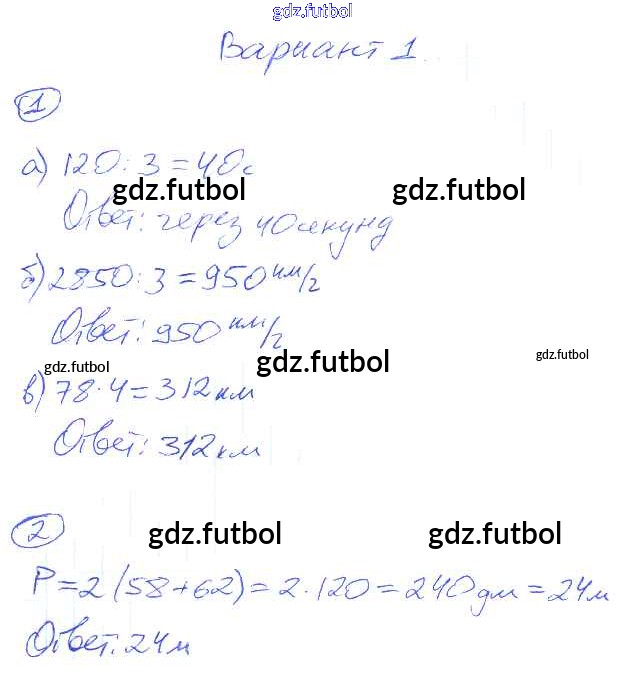 gdz.futbol
Вариант 1
1
а) 120 : 3 = 40с
gdz.futbol gdz.futbol
Ответ: через 40 секунд
б) 2850 : 3 = 950 км/г
Ответ: 950 км/г
gdz.futbol gdz.futbol gdz.futbol
в) 78 · 4 = 312 км
Ответ: 312 км
2
gdz.futbol gdz.futbol
P = 2 (58 + 62) = 2 · 120 = 240 дм = 24 м
Ответ: 24 м